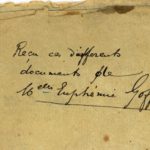 Recu ces differents
documents de
Mde Euphémie Goff